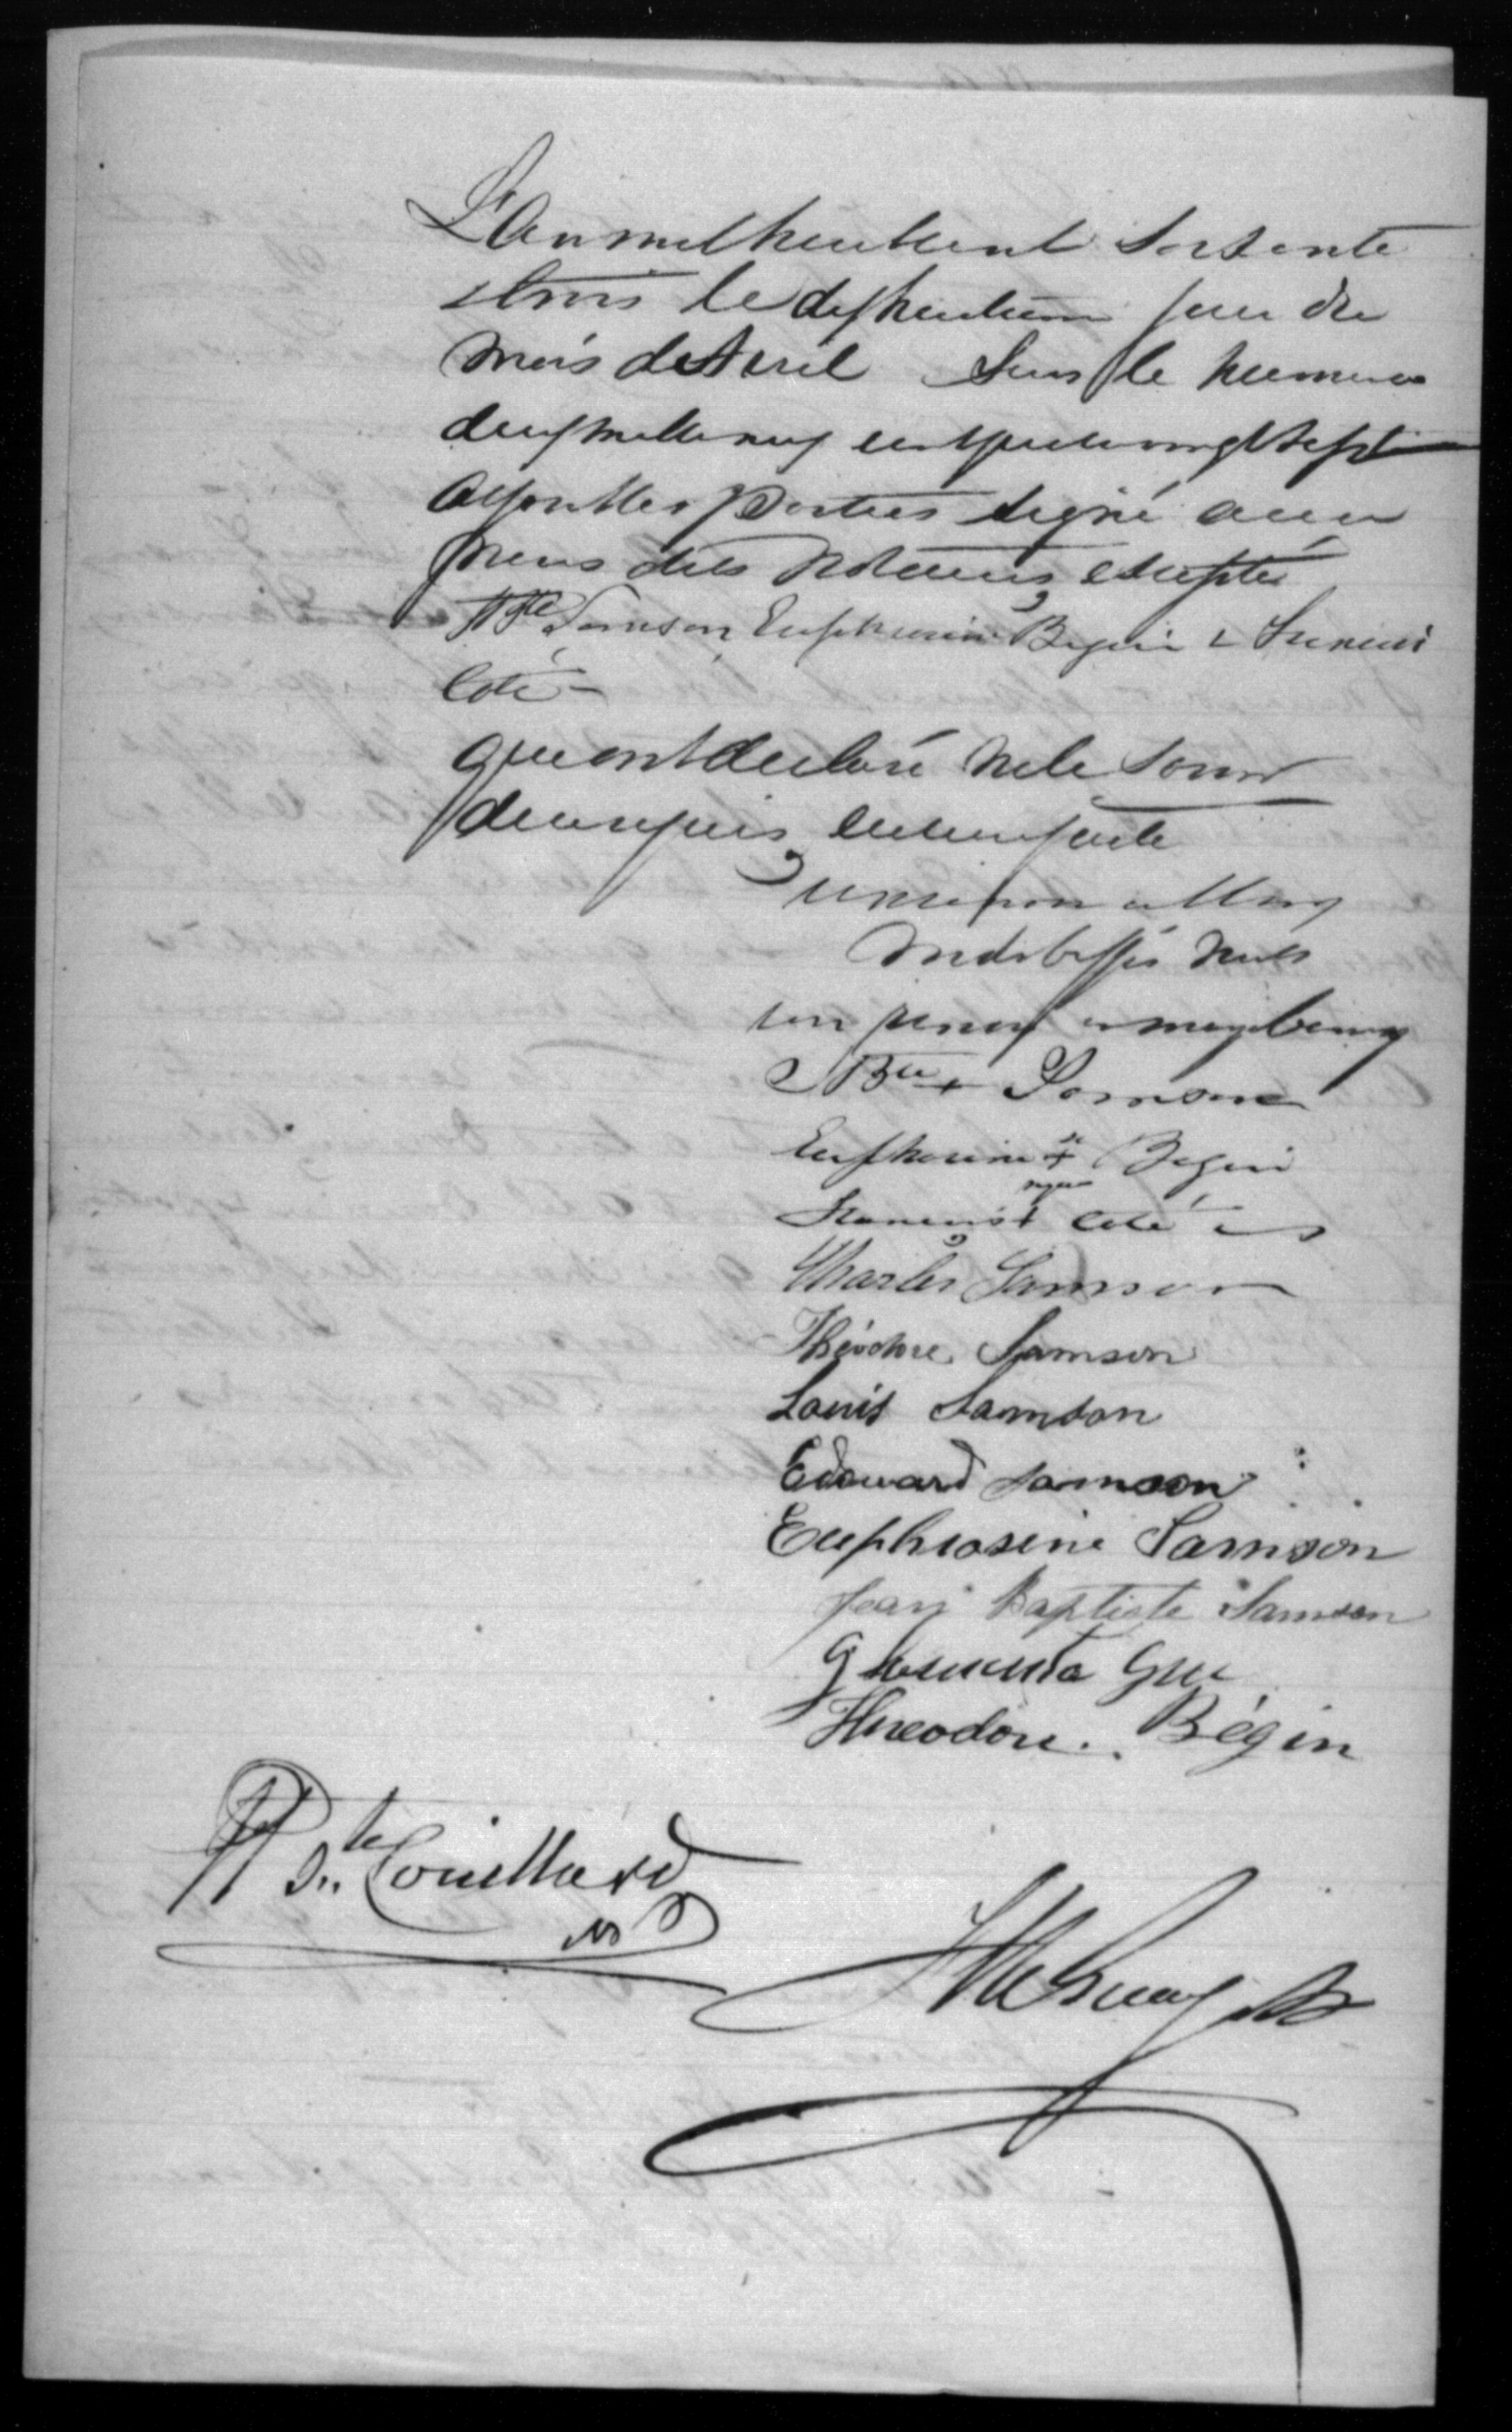 L'An mil huit cent soixante
et trois le dix huitième jour du
mois de Avril Sous le numero
deux mille neuf cent quatre vingt sept
Et ont les Parties signé avec
nous dits Notaires excepté
J Bte Samson Euphrosine Begin &
Coté –
qui ont declaré ne le savoir
de ce requis lecture faite
mots biffés nuls
J Bte + Samson
Euphrosine + Begin
+ Coté
Charles Samson
Théodore Samson
Louis Samson
Edouard Samson
Euphrosine Samson
Jean Baptiste Samson
Theodore Bégin
J Bte Couillard
NP